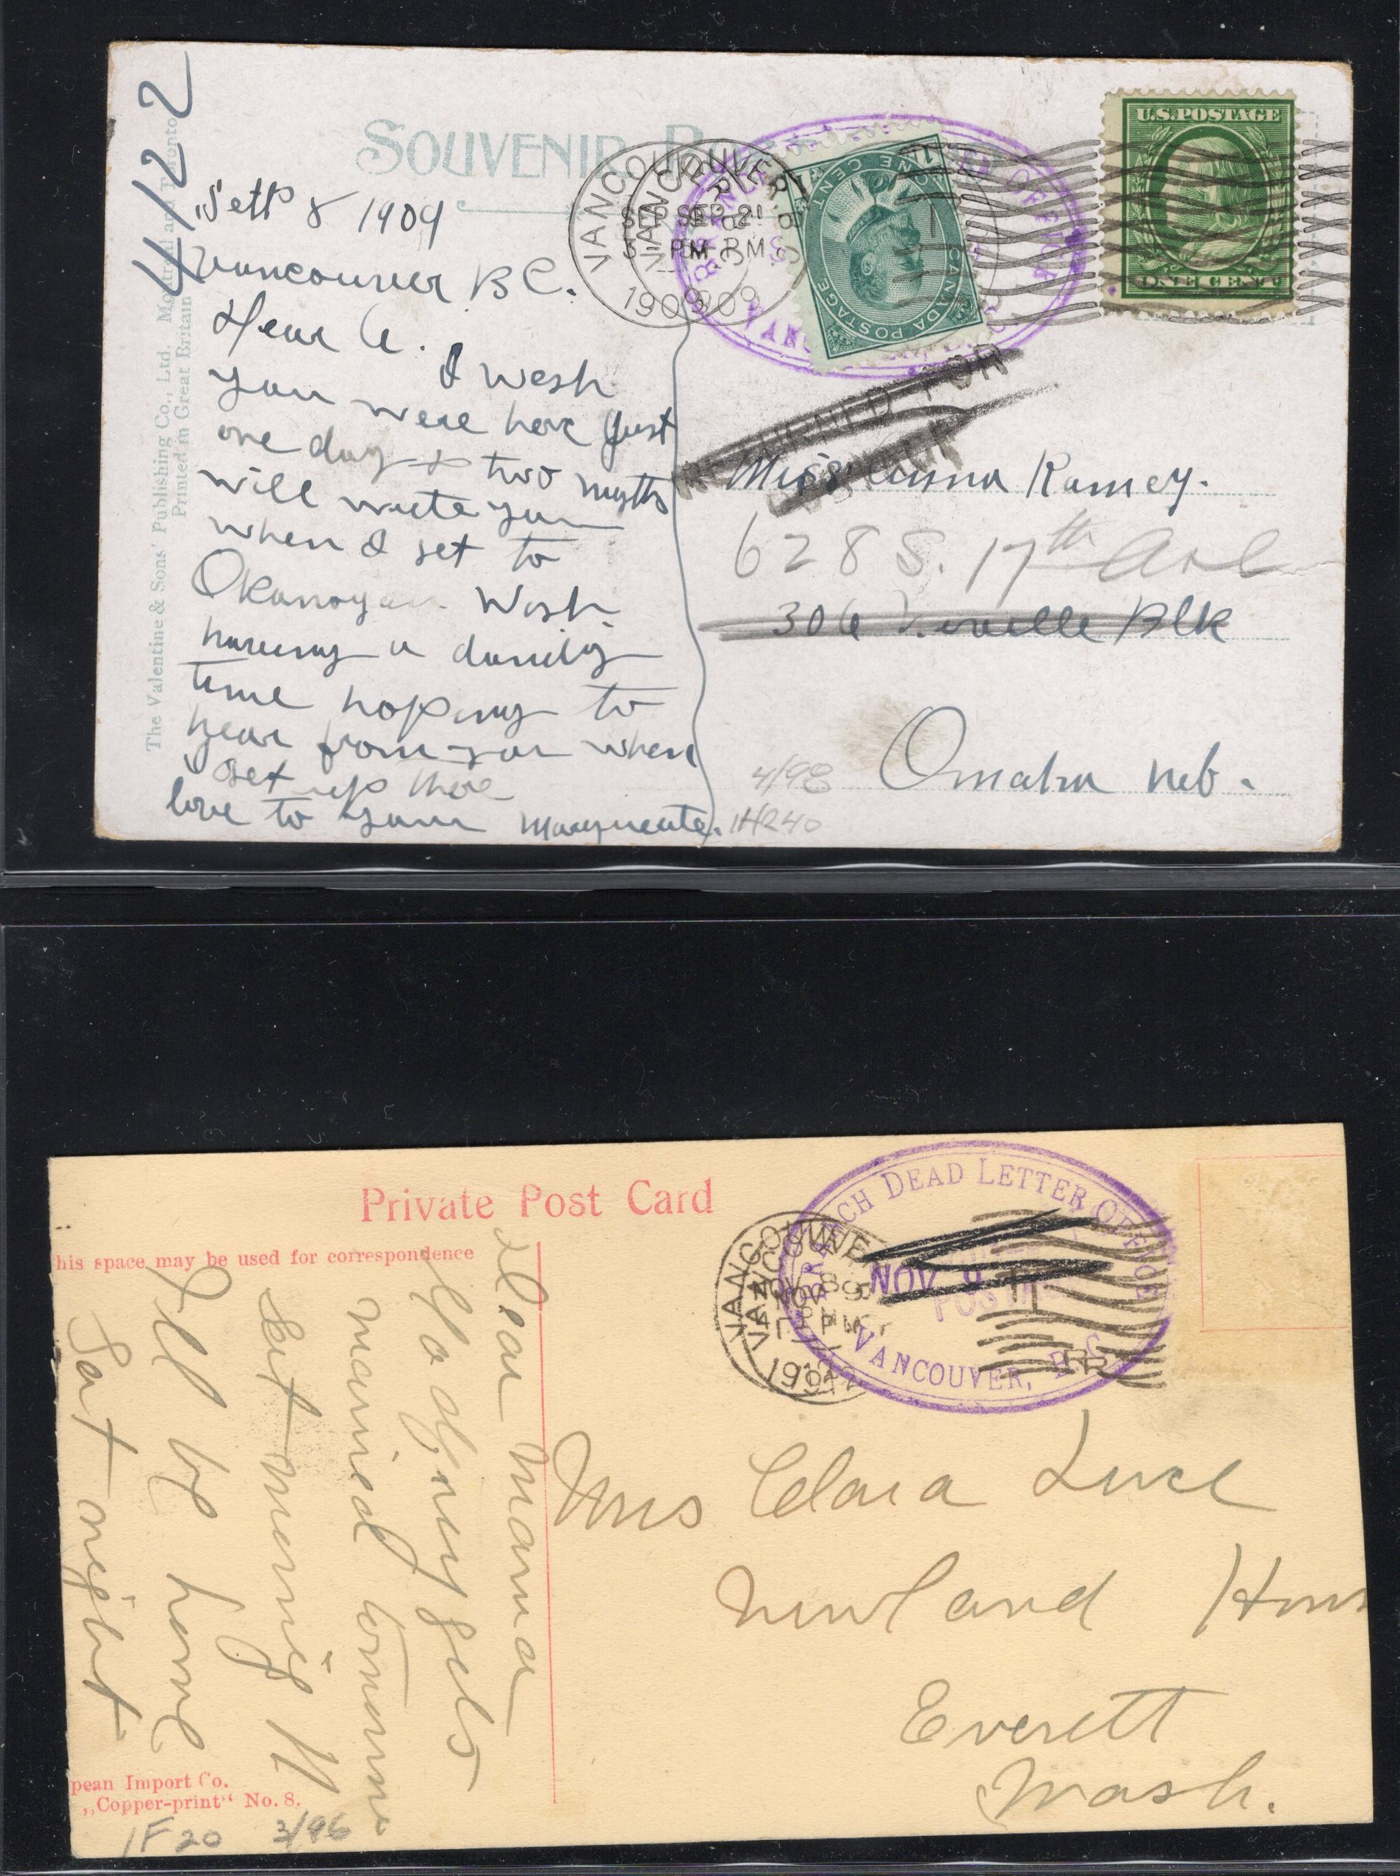 SOUVENIR P
4/22
Sett 8 1909
Vancouver BC.
Dear A. I wesh
you were here Just
one day & two nights
will write you
when I get to
Okanogan Wash.
having a dandy
time hoping to
hear from you when
get up there
love to you Marguerite.
The Valentine & Sons' Publishing Co., Ltd. Montreal and Toronto
Printed in Great Britain
VANCOUVER B.C.
SEP 21
PM
1909
CANADA POSTAGE
ONE CENT
U.S. POSTAGE
ONE CENT
RETURNED FOR
Miss Anna Ramey.
628 S. 17th Ave
306 Blk
Omaha Neb.
4/98
1H240
Private Post Card
his space may be used for correspondence
BRANCH DEAD LETTER OFFICE
NOV 9
VANCOUVER, B.C.
VANCOUVER
NOV 8
PM
1912
Dear Mama
Geo
married tomorrow
Sat morning
Ill be home
Sat night
Mrs Clara Luce
Newland Hous
Everett
Wash.
pean Import Co.
„Copper-print“ No. 8.
1F20 3/96